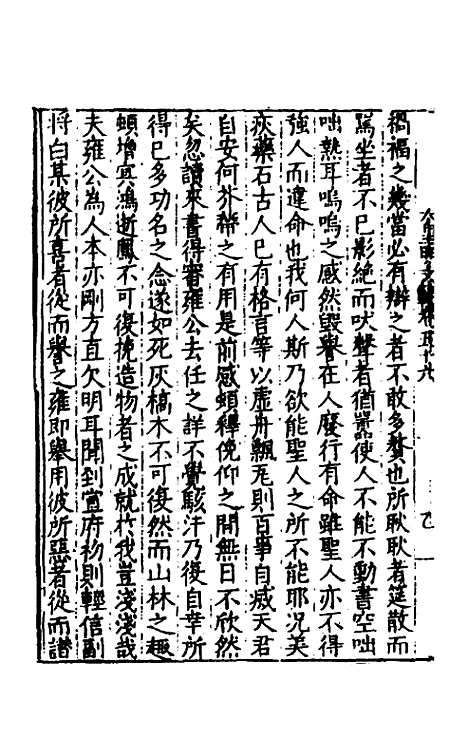 禍福之幾當必有辯之者不敢多贅也所耿耿者筵散而
罵坐者不已影絶而吠聲者猶囂使人不能不動書空咄
咄熱耳嗚嗚之感然毀譽在人廢行有命雖聖人亦不得
強人而違命也我何人斯乃欲能聖人之所不能耶况美
疢藥石古人已有格言等以虚舟飄瓦則百事自减天君
自安何芥蔕之有用是前感頓釋俛仰之間無日不欣然
矣忽讀來書得審雍公去任之詳不覺駭汗乃復自幸所
得已多功名之念遂如死灰槁木不可復然而山林之趣
頓增冥鴻逝鳳不可復挽造物者之成就於我豈淺淺哉
夫雍公為人本亦剛方直欠明耳聞到宣府初則輕信副
將白某彼所喜者從而譽之雍即舉用彼所惡者從而譖